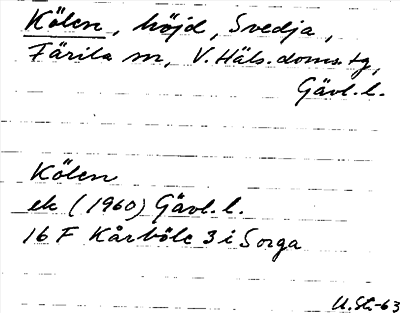 Kölen, höjd, Svedja,
Färila sn, V. Häls. doms. tg,
Gävl. l.
Kölen
ek (1960) Gävl. l.
16 F Kårböle 3 i Sorga
U. St.-63